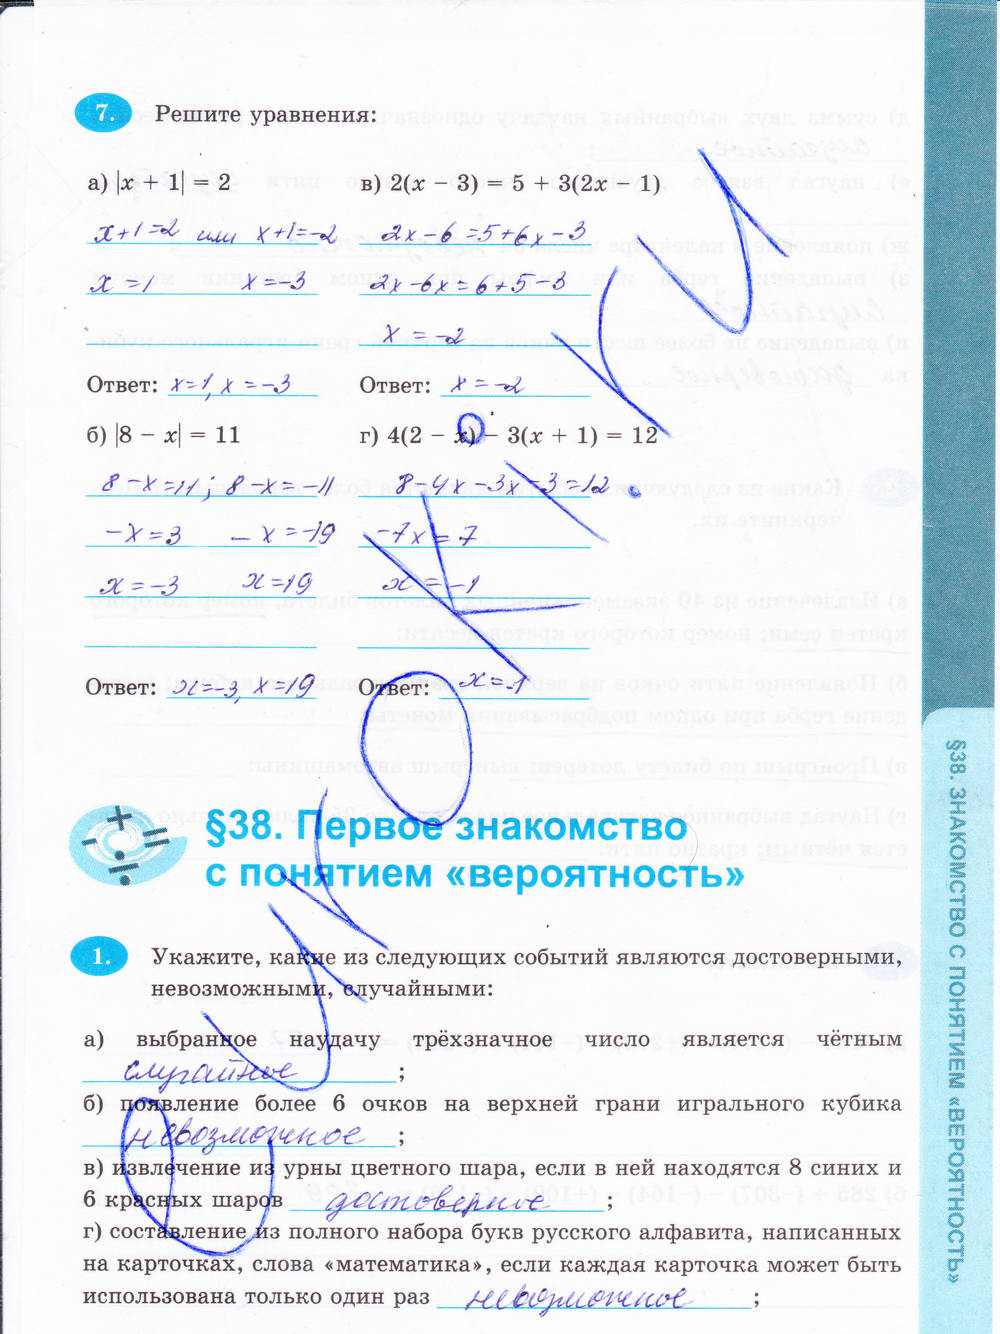 7. Решите уравнения:
а) |x + 1| = 2 в) 2(x − 3) = 5 + 3(2x − 1)
x+1=2 или x+1=-2 2x-6=5+6x-3
x=1 x=-3 2x-6x=6+5-3
x=-2
Ответ: x=1, x=-3 Ответ: x=-2
б) |8 − x| = 11 г) 4(2 − x) − 3(x + 1) = 12
8-x=11; 8-x=-11 8-4x-3x-3=12
-x=3 -x=-19 -7x=7
x=-3 x=19 x=-1
Ответ: x=-3, x=19 Ответ: x=-1
§38. Первое знакомство
с понятием «вероятность»
1. Укажите, какие из следующих событий являются достоверными,
невозможными, случайными:
а) выбранное наудачу трёхзначное число является чётным
случайное ;
б) появление более 6 очков на верхней грани игрального кубика
невозможное ;
в) извлечение из урны цветного шара, если в ней находятся 8 синих и
6 красных шаров достоверное ;
г) составление из полного набора букв русского алфавита, написанных
на карточках, слова «математика», если каждая карточка может быть
использована только один раз невозможное ;
§38. ЗНАКОМСТВО С ПОНЯТИЕМ «ВЕРОЯТНОСТЬ»